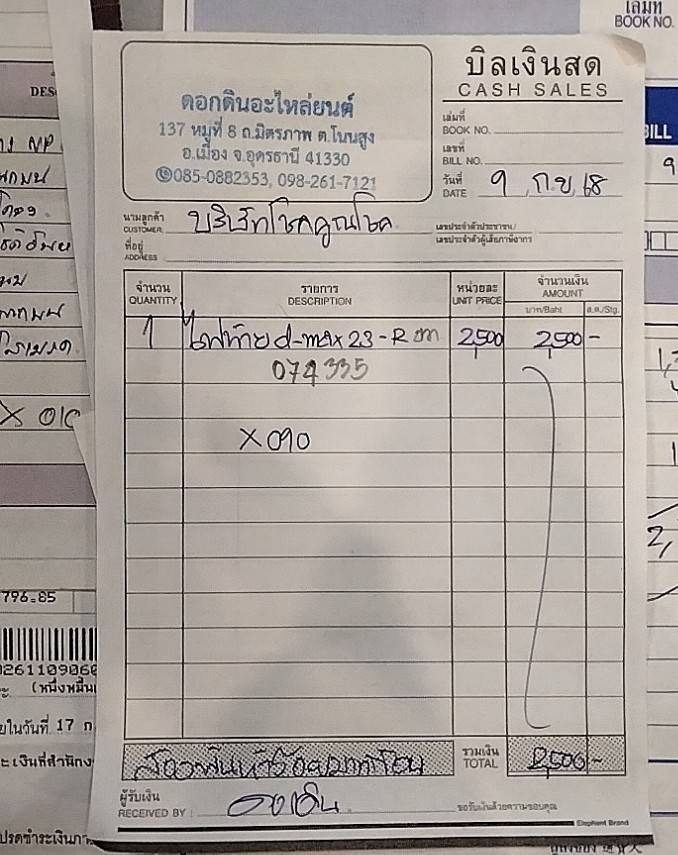 เล่มที่
BOOK NO.
บิลเงินสด
CASH SALES
ดอกดินอะไหล่ยนต์
137 หมู่ที่ 8 ถ.มิตรภาพ ต.โนนสูง
อ.เมือง จ.อุดรธานี 41330
085-0882353, 098-261-7121
เล่มที่
BOOK NO.
เลขที่
BILL NO.
วันที่ 9 ก.ย. 68
DATE
นามลูกค้า บริษัทโชคคูณโชค
CUSTOMER
เลขประจำตัวประชาชน/
เลขประจำตัวผู้เสียภาษีอากร
ที่อยู่
ADDRESS
จำนวน รายการ หน่วยละ จำนวนเงิน
QUANTITY DESCRIPTION UNIT PRICE AMOUNT
บาท/Baht ส.ต./Stg.
1 ไฟท้าย d-max 23-R 2,500 2,500 -
074335
X 090
สองพันห้าร้อยบาทถ้วน
รวมเงิน
TOTAL 2,500 -
ผู้รับเงิน
RECEIVED BY :
ขอรับเงินด้วยความขอบคุณ
Elephant Brand
DES
BILL
X 010
796.85
026110906
(หนึ่งหมื่น
ในวันที่ 17 ก